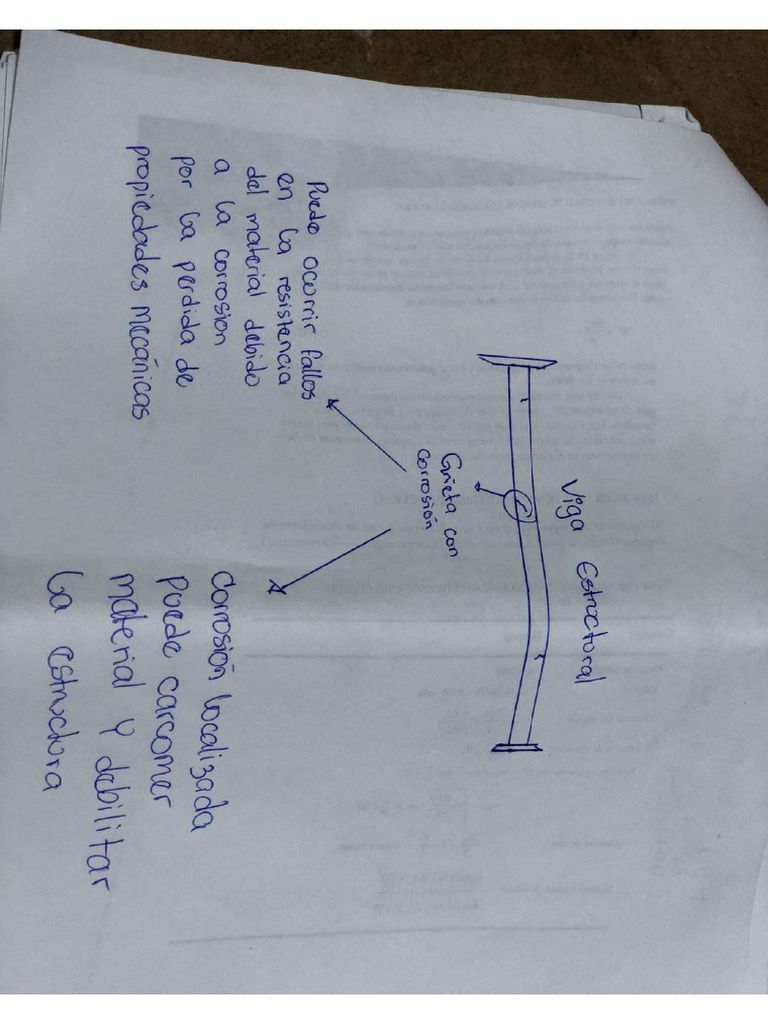 Viga Estructural
Grieta con
corrosión
Puede ocurrir fallos
en la resistencia
del material debido
a la corrosion
por la perdida de
propiedades mecánicas
Corrosión localizada
puede carcomer
material y debilitar
la estructura